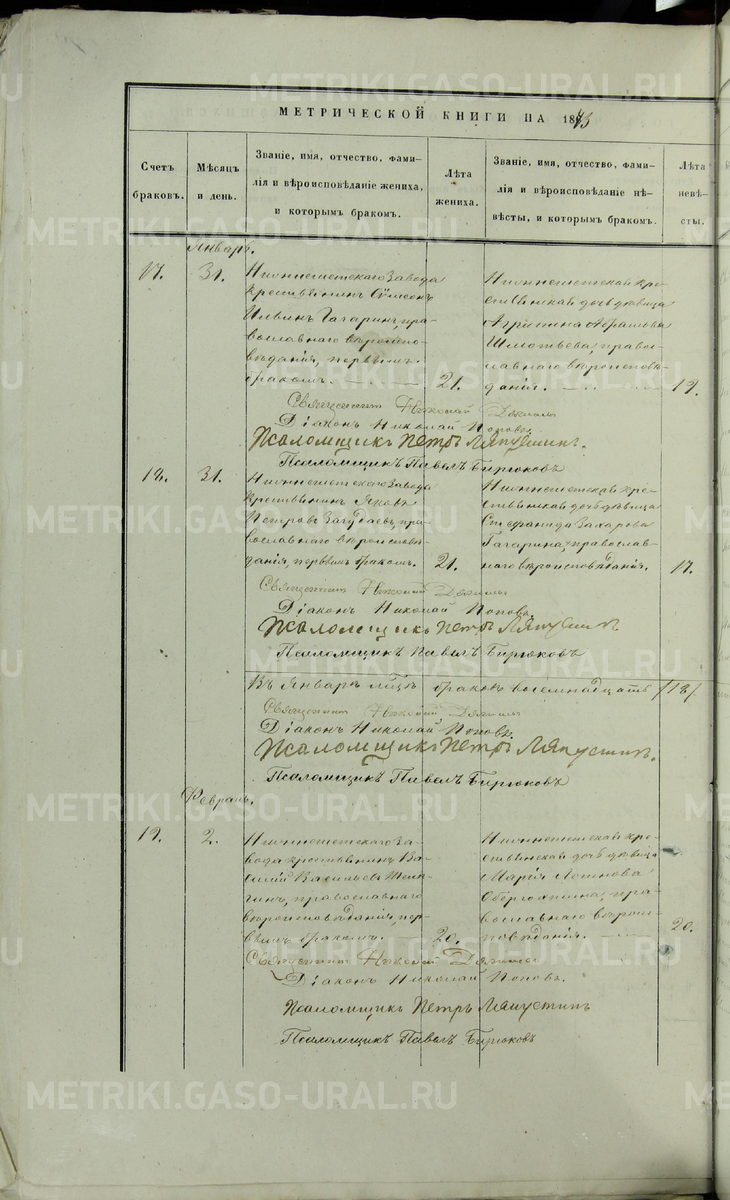 МЕТРИЧЕСКОЙ КНИГИ НА 1873
Счетъ браковъ.
Мѣсяцъ и день.
Званіе, имя, отчество, фами-
лія и вѣроисповѣданіе жениха,
и которымъ бракомъ.
Лѣта жениха.
Званіе, имя, отчество, фами-
лія и вѣроисповѣданіе не-
вѣсты, и которымъ бракомъ.
Лѣта невѣ-
сты.
Январь.
17. 31.
завода
крестьянинъ Сѵмеонъ
Ильинъ Гагаринъ, пра-
вославнаго вѣроиспо-
вѣданія, первымъ
бракомъ. 21.
кре-
стьянская дочь дѣвица
Агрипина Абрамова
православнаго вѣроисповѣ-
данія. 19.
Священникъ Николай
Діаконъ Николай Поповъ.
Псаломщикъ Петръ Ляпустинъ.
Псаломщикъ Павелъ Бирюковъ
18. 31.
завода
крестьянинъ Яковъ
Петровъ пра-
вославнаго вѣроисповѣ-
данія, первымъ бракомъ. 21.
кре-
стьянская дочь дѣвица
Стефанида Захарова
Гагарина, православ-
наго вѣроисповѣданія. 17.
Священникъ Николай
Діаконъ Николай Поповъ.
Псаломщикъ Петръ Ляпустинъ
Псаломщикъ Павелъ Бирюковъ
Въ Январѣ м͠цѣ браковъ восемнадцать /18/.
Священникъ Николай
Діаконъ Николай Поповъ.
Псаломщикъ Петръ Ляпустинъ.
Псаломщикъ Павелъ Бирюковъ
Февраль.
19. 2.
за-
вода крестьянинъ Ва-
силій Васильевъ
православнаго
вѣроисповѣданія, пер-
вымъ бракомъ. 20.
кре-
стьянская дочь дѣвица
Марія Логинова
пра-
вославнаго вѣроис-
повѣданія. 20.
Священникъ Николай
Діаконъ Николай Поповъ.
Псаломщикъ Петръ Ляпустинъ
Псаломщикъ Павелъ Бирюковъ
METRIKI.GASO-URAL.RU